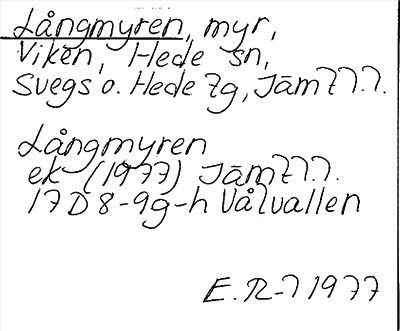 Långmyren, myr,
Viken, Hede sn,
Svegs o. Hede tg, Jämtl.
Långmyren
ek (1977) Jämtl.
17D 8-9g-h Vålvallen
E. R-l 1977